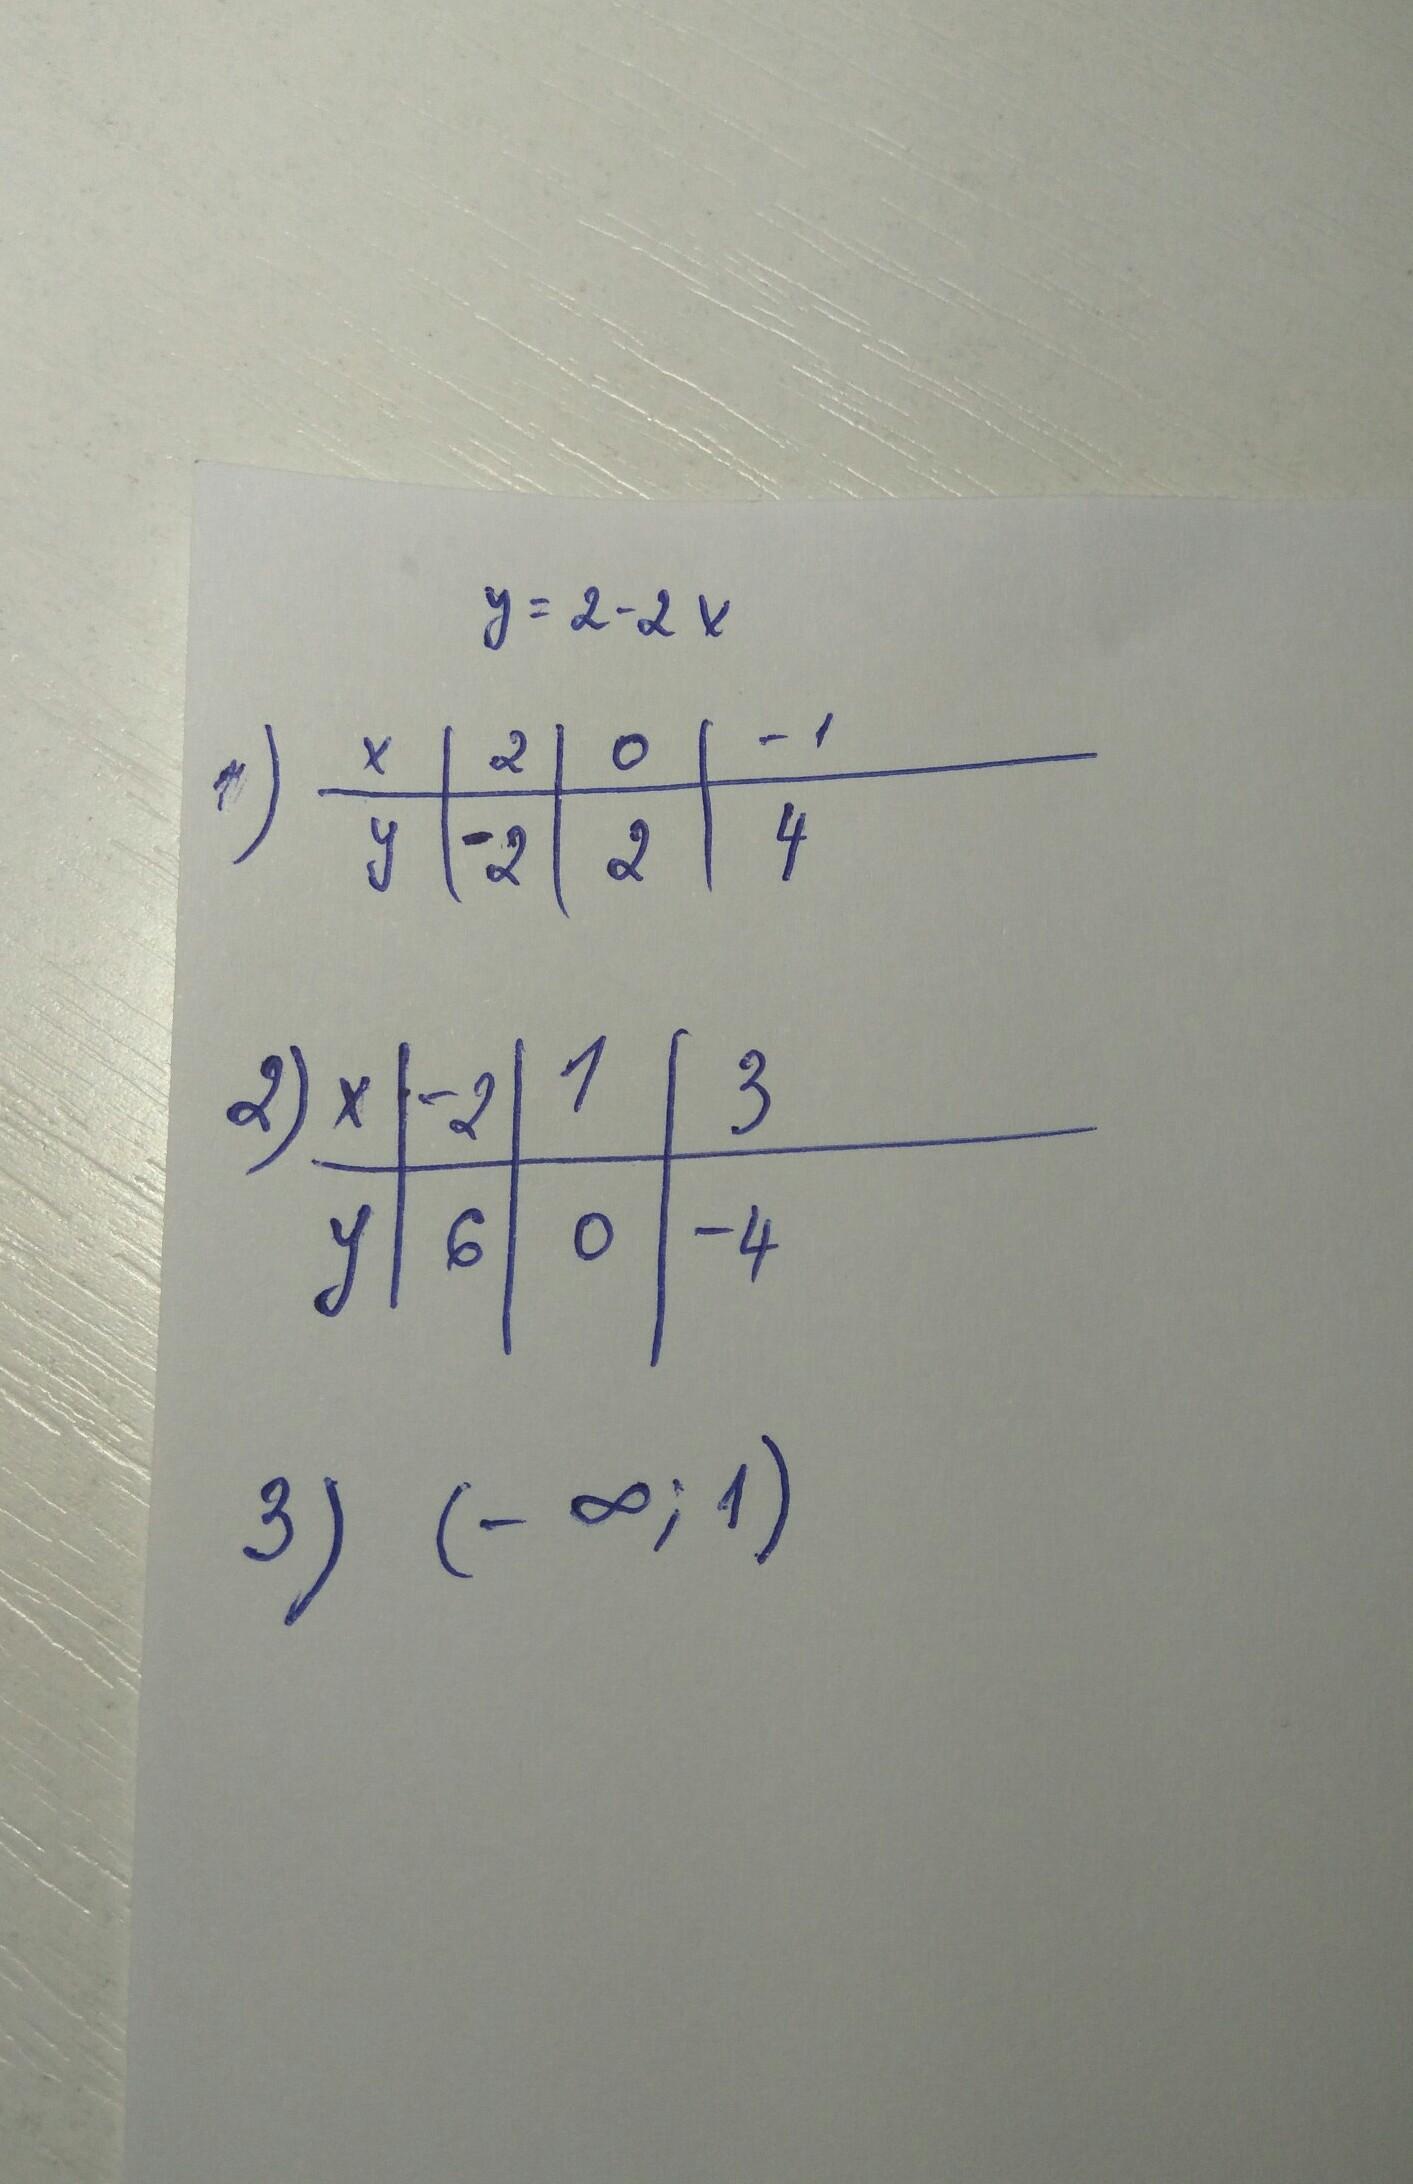 y = 2 - 2x
1) x | 2 | 0 | -1
y | -2 | 2 | 4
2) x | -2 | 1 | 3
y | 6 | 0 | -4
3) (-∞; 1)